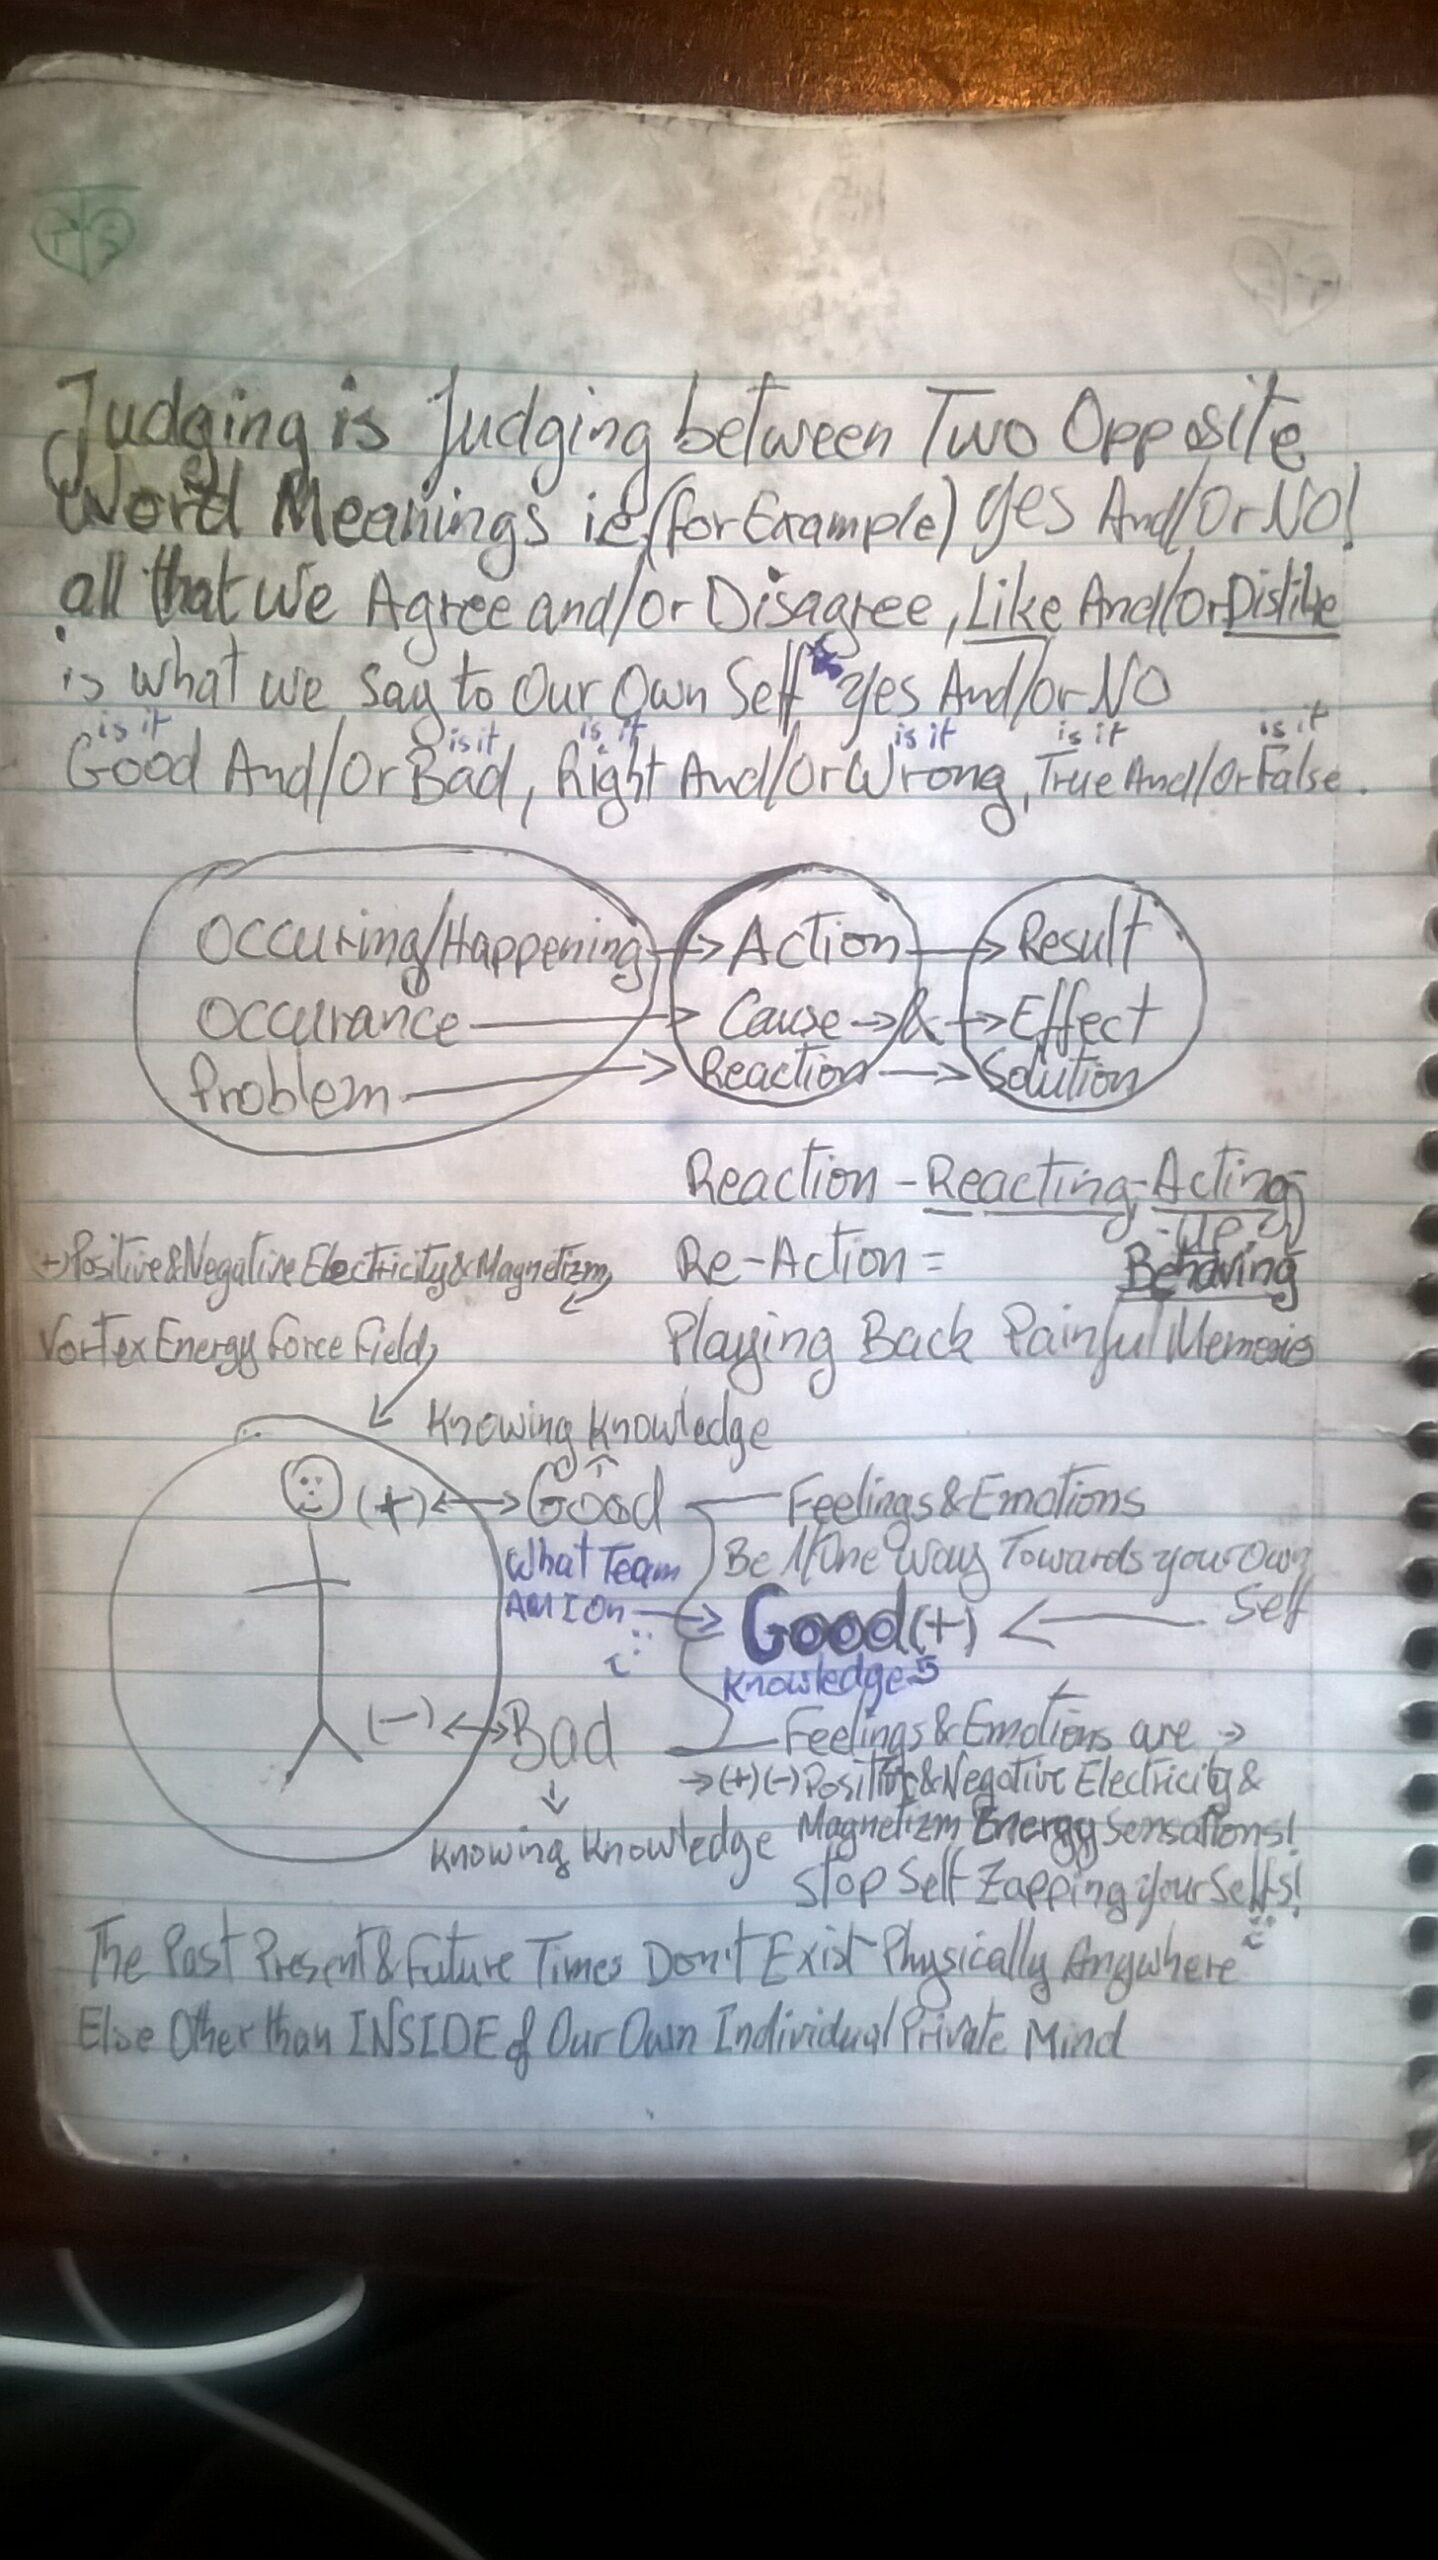 Judging is Judging between Two Opposite
Word Meanings ie (for Example) Yes And/Or NO!
all that we Agree and/or Disagree, Like And/Or Dislike
is what we Say to Our Own Self Yes And/or NO
is it is it is it is it is it is it
Good And/Or Bad, Right And/Or Wrong, True And/Or False.
Occuring/Happening → Action → Result
Occurance → Cause → & → Effect
Problem → Reaction → Solution
Reaction - Reacting - Acting
-Up,
Re-Action = Behaving
Playing Back Painful Memories
Positive & Negative Electricity & Magnetizm
Vortex Energy Force Field
Knowing Knowledge
(+) ↔ Good Feelings & Emotions
What Team Be 1/One Way Towards your Own
AM I On → Good (+) ← Self
Knowledge
(-) ↔ Bad Feelings & Emotions are →
→ (+) (-) Positive & Negative Electricity &
Magnetizm Energy Sensations!
Knowing Knowledge
Stop Self Zapping YourSelfs!
The Past Present & Future Times Don't Exist Physically Anywhere
Else Other than INSIDE of Our Own Individual Private Mind